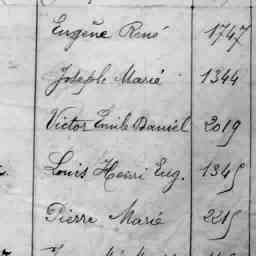 Eugène René 1747
Joseph Marie 1344
Victor Emile Daniel 2019
Louis Henri Eug. 1345
Pierre Marie 2215